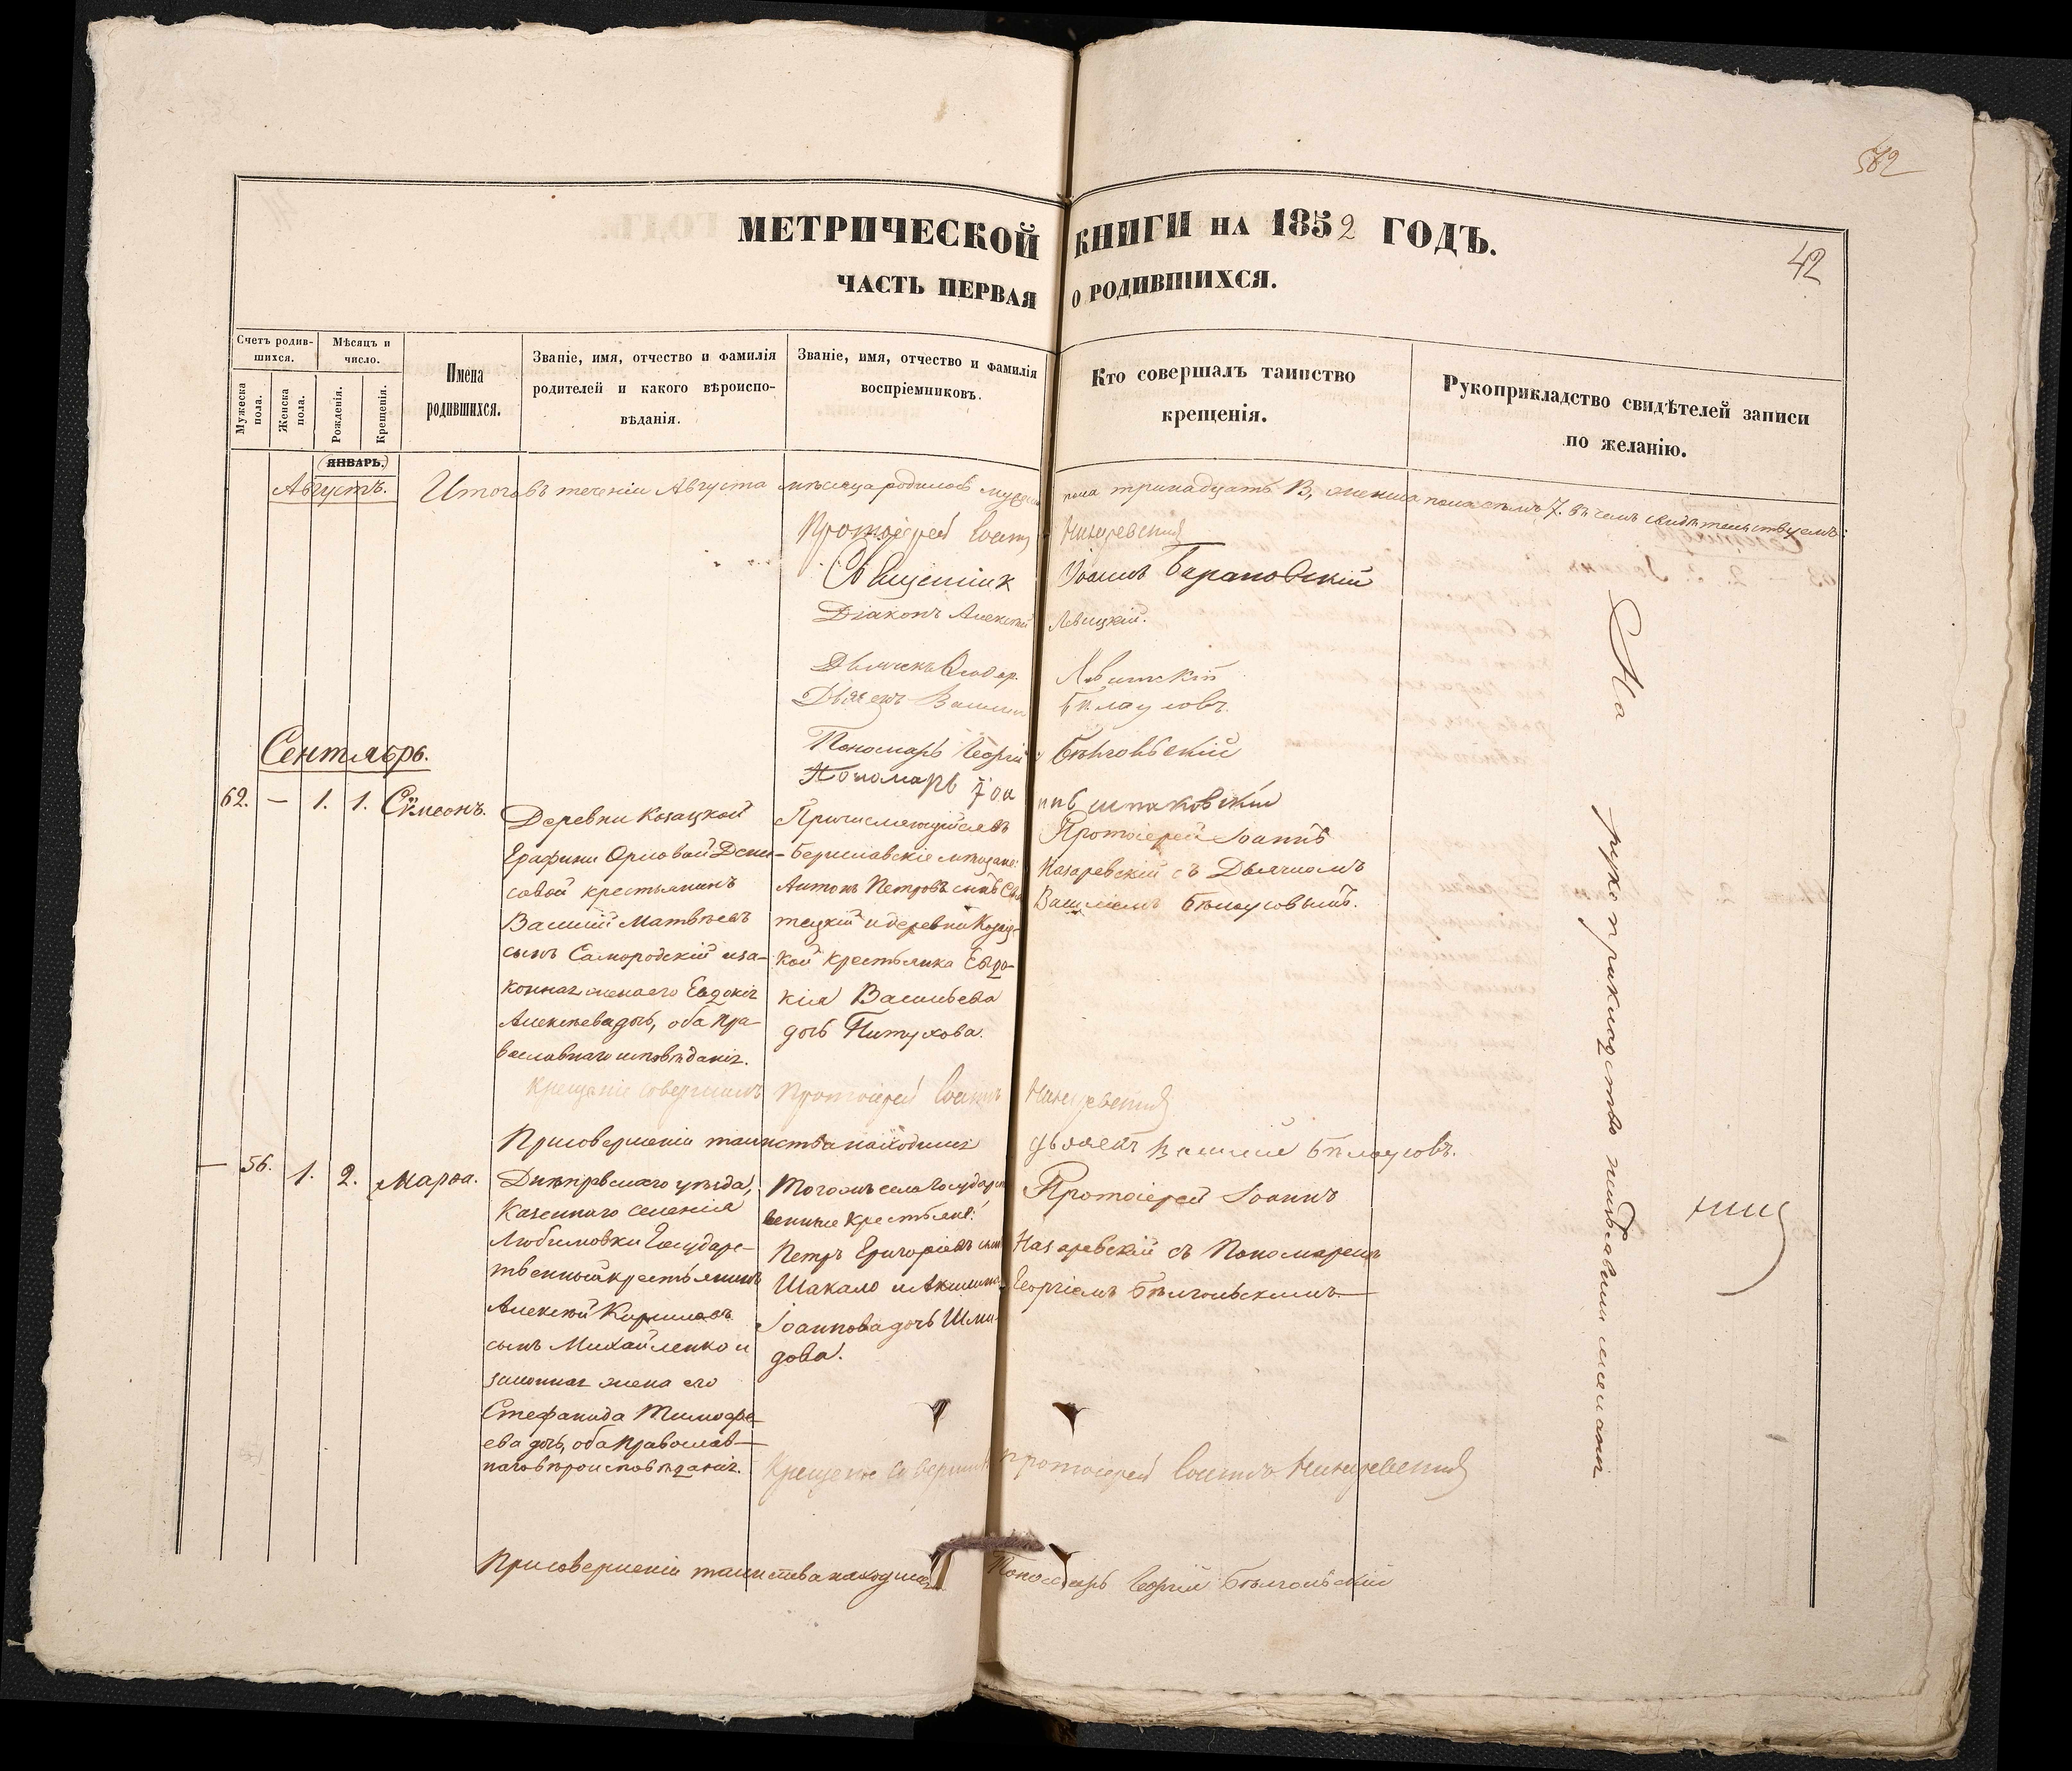 582
МЕТРИЧЕСКОЙ КНИГИ НА 1852 ГОДЪ.
42
ЧАСТЬ ПЕРВАЯ О РОДИВШИХСЯ.
Счетъ родившихся.
Мужеска пола.
Женска пола.
Мѣсяцъ и число.
Рожденія.
Крещенія.
Имена родившихся.
Званіе, имя, отчество и фамилія
родителей и какого вѣроиспо-
вѣданія.
Званіе, имя, отчество и фамилія
воспріемниковъ.
Кто совершалъ таинство
крещенія.
Рукоприкладство свидѣтелей записи
по желанію.
ЯНВАРЬ.
Августъ.
Итого въ теченіи Августа мѣсяца родилось мужеска пола тринадцать 13, женска пола семь 7. въ чемъ свидѣтельствуемъ:
Протоіерей Іоаннъ Назаревскій
Священник Іоаннъ Барановскій
Діаконъ Алексѣй Левицкій.
Дьячекъ Левитскій
Дьячекъ Василій Бѣлоусовъ.
Пономарь Георгій Бѣлгольскій
Пономарь Іоаннъ Шпаковскій
Сентябрь.
62. — 1. 1. Сѵмеонъ.
Деревни Козацкой
Графини Орловой Дени-
совой крестьянинъ
Василій Матвѣевъ
сынъ Самородскій и за-
конная жена его Евдокія
Алексѣева дочь, оба пра-
вославнаго исповѣданія.
Причисляющійся въ
Бериславскіе мѣщане
Антонъ Петровъ сынъ
и деревни Козац-
кой крестьянка Евдо-
кія Васильева
дочь Питухова.
Протоіерей Іоаннъ
Назаревскій съ Дьячкомъ
Василіемъ Бѣлоусовымъ.
Крещеніе совершилъ Протоіерей Іоаннъ Назаревскій
При совершеніи таинства находился дьячекъ Василій Бѣлоусовъ.
— 56. 1. 2. Марѳа.
Днѣпровскаго уѣзда,
Казеннаго селенія
Любимовки Государс-
твенный крестьянинъ
Алексѣй Кириловъ
сынъ Михайленко и
законная жена его
Стефанида Тимофе-
ева дочь, оба православ-
наго вѣроисповѣданія.
Того жъ села Государст-
венные крестьяне:
Петръ Григоріевъ сынъ
Шакало и Акилина
Іоаннова дочь Шми-
дова.
Протоіерей Іоаннъ
Назаревскій съ Пономаремъ
Георгіемъ Бѣлгольскимъ
Крещеніе совершилъ Протоіерей Іоаннъ Назаревскій
При совершеніи таинства находился Пономарь Георгій Бѣлгольскій
На рукоприкладство